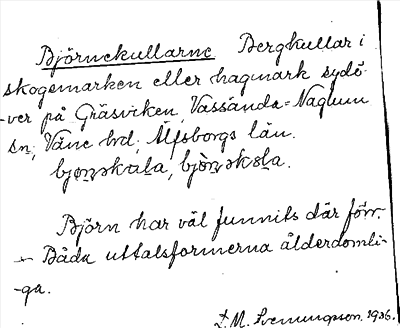 Björnekullarne Bergkullar i
skogsmarken eller hagmark sydö-
ver på Gräsviken, Vassända-Naglum
sn; Väne hd; Älfsborgs län.
bjo̱ṇəkala̱, bjò̱ṇəksla̱.
Björn har väl funnits där förr.
- Båda uttalsformerna ålderdomli-
-ga.
L. M. Svenungsson. 1936.